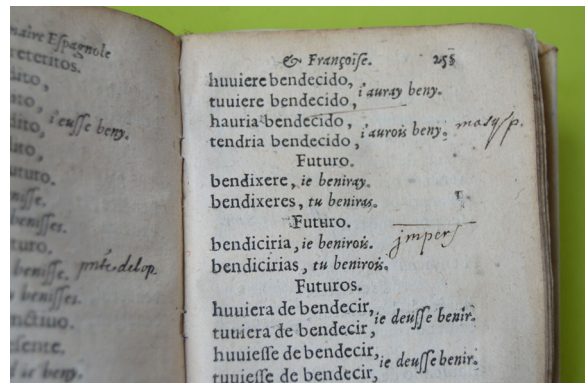 naire Espagnole
reteritos.
i'eusse beny.
benisses.
benisse. pnte delop.
benisses.
ie beny.
& Françoise. 255
huuiere bendecido,
tuuiere bendecido, i'auray beny.
hauria bendecido,
tendria bendecido, i'aurois beny.
Futuro.
bendixere, ie beniray.
bendixeres, tu beniras.
Futuro.
bendiciria, ie benirois. jmperf
bendicirias, tu benirois.
Futuros.
huuiera de bendecir,
tuuiera de bendecir, ie deusse benir.
huuiesse de bendecir,
tuuiesse de bendecir, ie deusse benir.